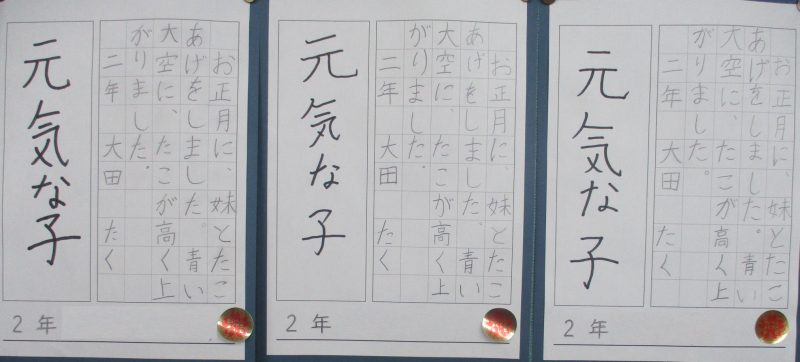 お正月に、妹とたこ
あげをしました。青い
大空に、たこが高く上
がりました。
二年 大田 たく
元気な子
2 年
お正月に、妹とたこ
あげをしました。青い
大空に、たこが高く上
がりました。
二年 大田 たく
元気な子
2 年
お正月に、妹とたこ
あげをしました。青い
大空に、たこが高く上
がりました。
二年 大田 たく
元気な子
2 年